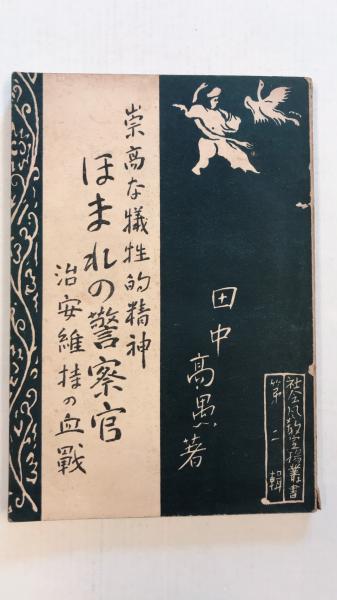 社会風教宣揚叢書
第二輯
田中高愚著
崇高な犠牲的精神
ほまれの警察官
治安維持の血戰